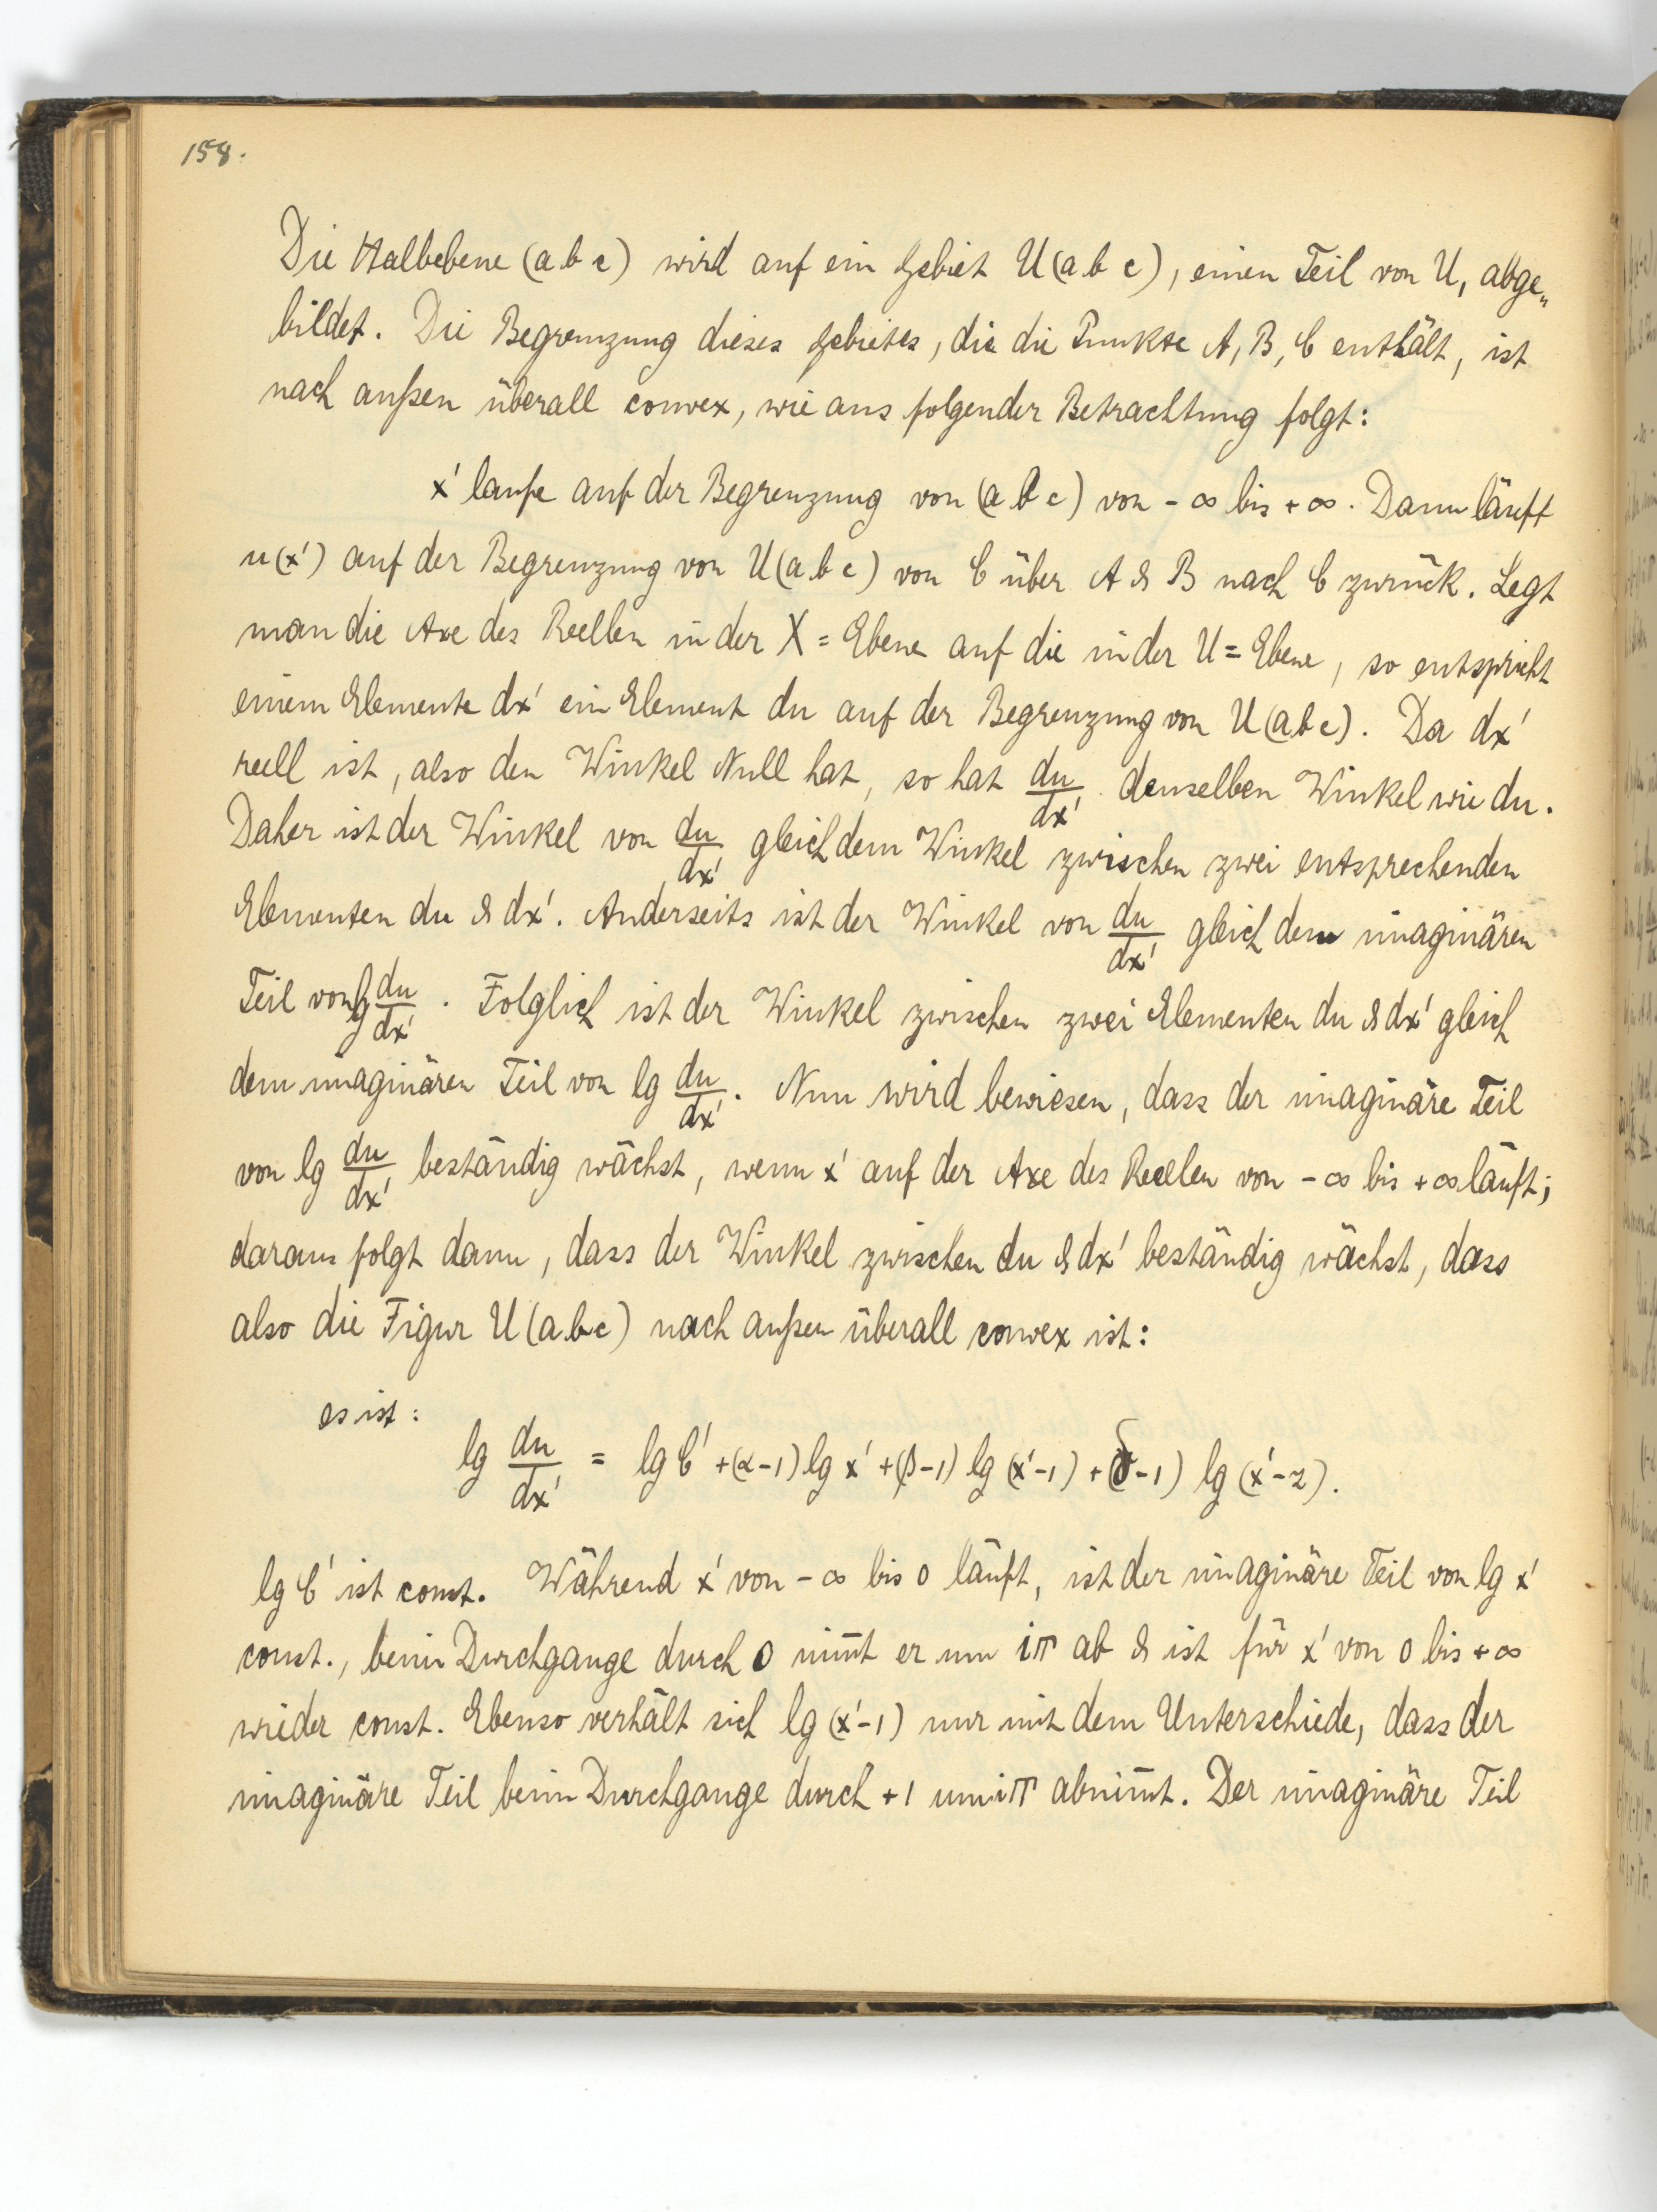 158.
Die Halbebene (a b c) wird auf ein Gebiet U(a b c), einen Teil von U, abge„
bildet. Die Begrenzung dieses Gebietes, die die Punkte A, B, C enthält, ist
nach außen überall convex, wie aus folgender Betrachtung folgt:
x' laufe auf der Begrenzung von (a b c) von -∞ bis +∞. Dann läuft
u(x') auf der Begrenzung von U(a b c) von C über A & B nach C zurück. Legt
man die Axe des Reellen in der X = Ebene auf die in der U = Ebene, so entspricht
einem Elemente dx' ein Element du auf der Begrenzung von U(a b c). Da dx'
reell ist, also den Winkel Null hat, so hat du/dx' denselben Winkel wie du.
Daher ist der Winkel von du/dx' gleich dem Winkel zwischen zwei entsprechenden
Elementen du & dx'. Anderseits ist der Winkel von du/dx' gleich dem imaginären
Teil von lg du/dx'. Folglich ist der Winkel zwischen zwei Elementen du & dx' gleich
dem imaginären Teil von lg du/dx'. Nun wird bewiesen, dass der imaginäre Teil
von lg du/dx' beständig wächst, wenn x' auf der Axe des Reellen von -∞ bis +∞ läuft;
daraus folgt dann, dass der Winkel zwischen du & dx' beständig wächst, dass
also die Figur U(a b c) nach außen überall convex ist:
es ist:
lg du/dx' = lg C' + (α-1) lg x' + (β-1) lg (x'-1) + (δ-1) lg (x'-z).
lg C' ist const. Während x' von -∞ bis 0 läuft, ist der imaginäre Teil von lg x'
const., beim Durchgange durch 0 nim̅t er um iπ ab & ist für x' von 0 bis +∞
wieder const. Ebenso verhält sich lg (x'-1) nur mit dem Unterschiede, dass der
imaginäre Teil beim Durchgange durch +1 um iπ abnim̅t. Der imaginäre Teil